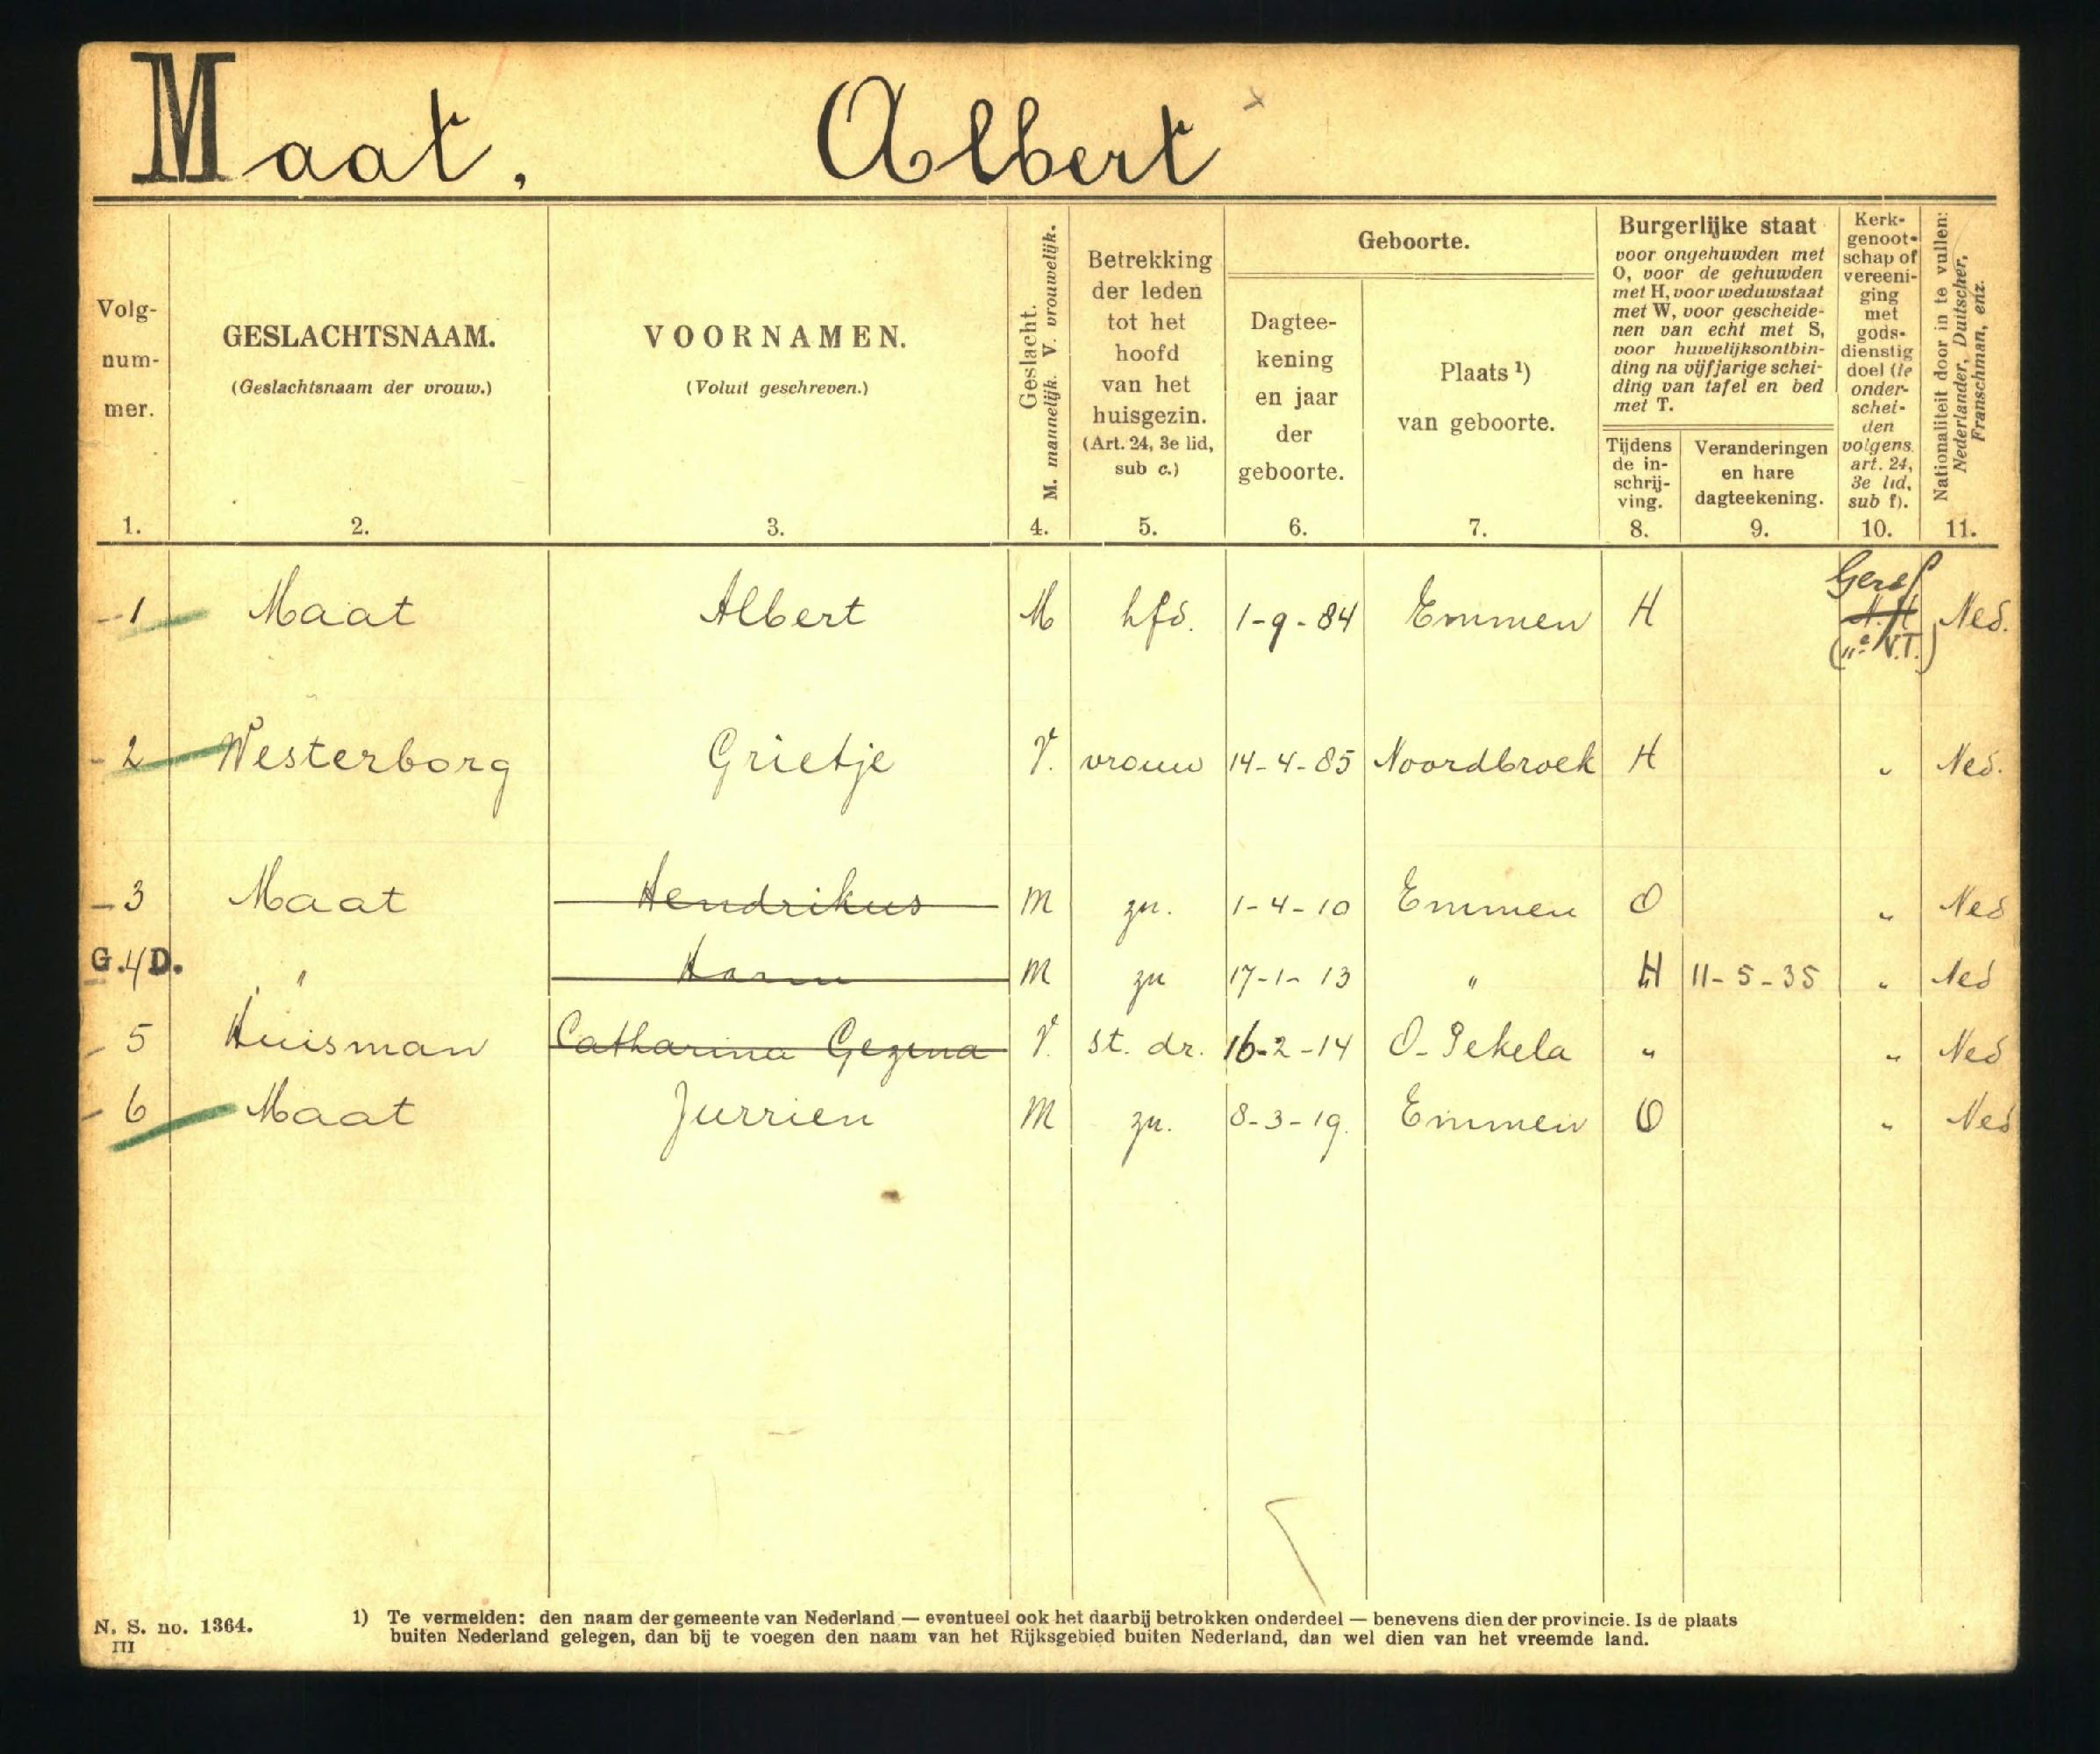 Maat, Albert
Volg-
num-
mer.
1.
GESLACHTSNAAM.
(Geslachtsnaam der vrouw.)
2.
VOORNAMEN.
(Voluit geschreven.)
3.
Geslacht.
M. mannelijk. V. vrouwelijk.
4.
Betrekking
der leden
tot het
hoofd
van het
huisgezin.
(Art. 24, 3e lid,
sub c.)
5.
Geboorte.
Dagtee-
kening
en jaar
der
geboorte.
6.
Plaats ¹)
van geboorte.
7.
Burgerlijke staat
voor ongehuwden met
O, voor de gehuwden
met H, voor weduwstaat
met W, voor gescheide-
nen van echt met S,
voor huwelijksontbin-
ding na vijfjarige schei-
ding van tafel en bed
met T.
Tijdens
de in-
schrij-
ving.
8.
Veranderingen
en hare
dagteekening.
9.
Kerk-
genoot-
schap of
vereeni-
ging
met
gods-
dienstig
doel (te
onder-
schei-
den
volgens
art. 24,
3e lid,
sub f).
10.
Nationaliteit door in te vullen:
Nederlander, Duitscher,
Franschman, enz.
11.
1 Maat Albert M hfd. 1-9-84 Emmen H Geref N.H. Ned.
2 Westerborg Grietje V. vrouw 14-4-85 Noordbroek H " Ned.
3 Maat Hendrikus M zn. 1-4-10 Emmen O " Ned
G.4D. " Harm M zn 17-1-13 " H 11-5-35 " Ned
5 Huisman Catharina Gezina V. st. dr. 16-2-14 O-Pekela " " Ned
6 Maat Jurrien M zn. 8-3-19. Emmen O " Ned
N. S. no. 1364.
III
1) Te vermelden: den naam der gemeente van Nederland — eventueel ook het daarbij betrokken onderdeel — benevens dien der provincie. Is de plaats
buiten Nederland gelegen, dan bij te voegen den naam van het Rijksgebied buiten Nederland, dan wel dien van het vreemde land.